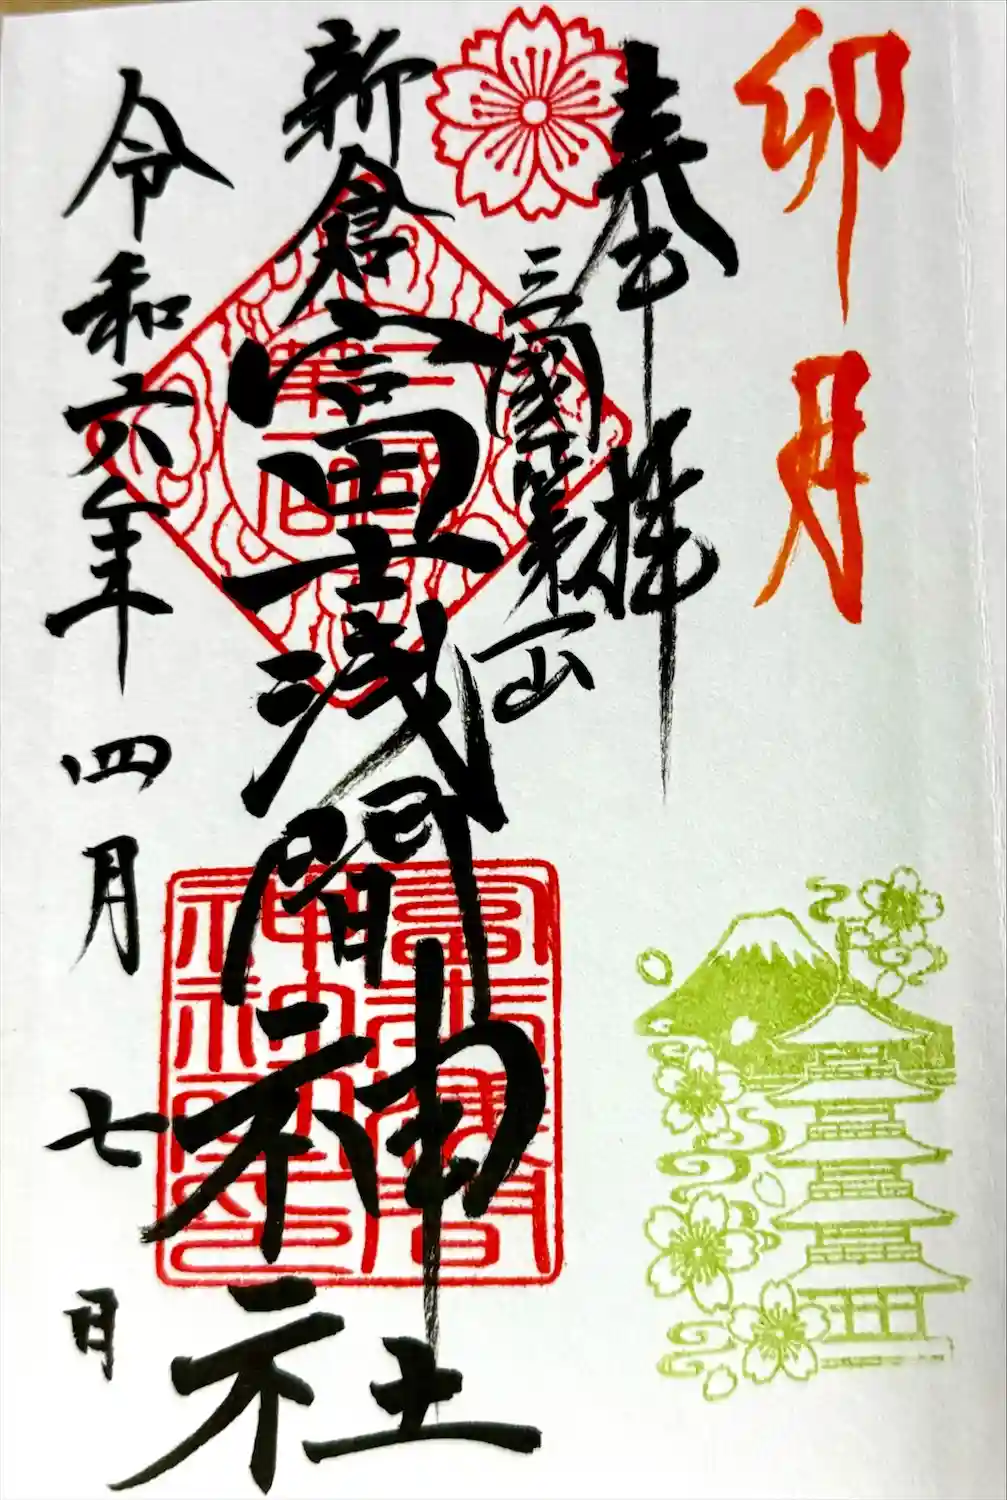 卯月
奉拝
三國第一山
新倉富士浅間神社
令和六年四月七日